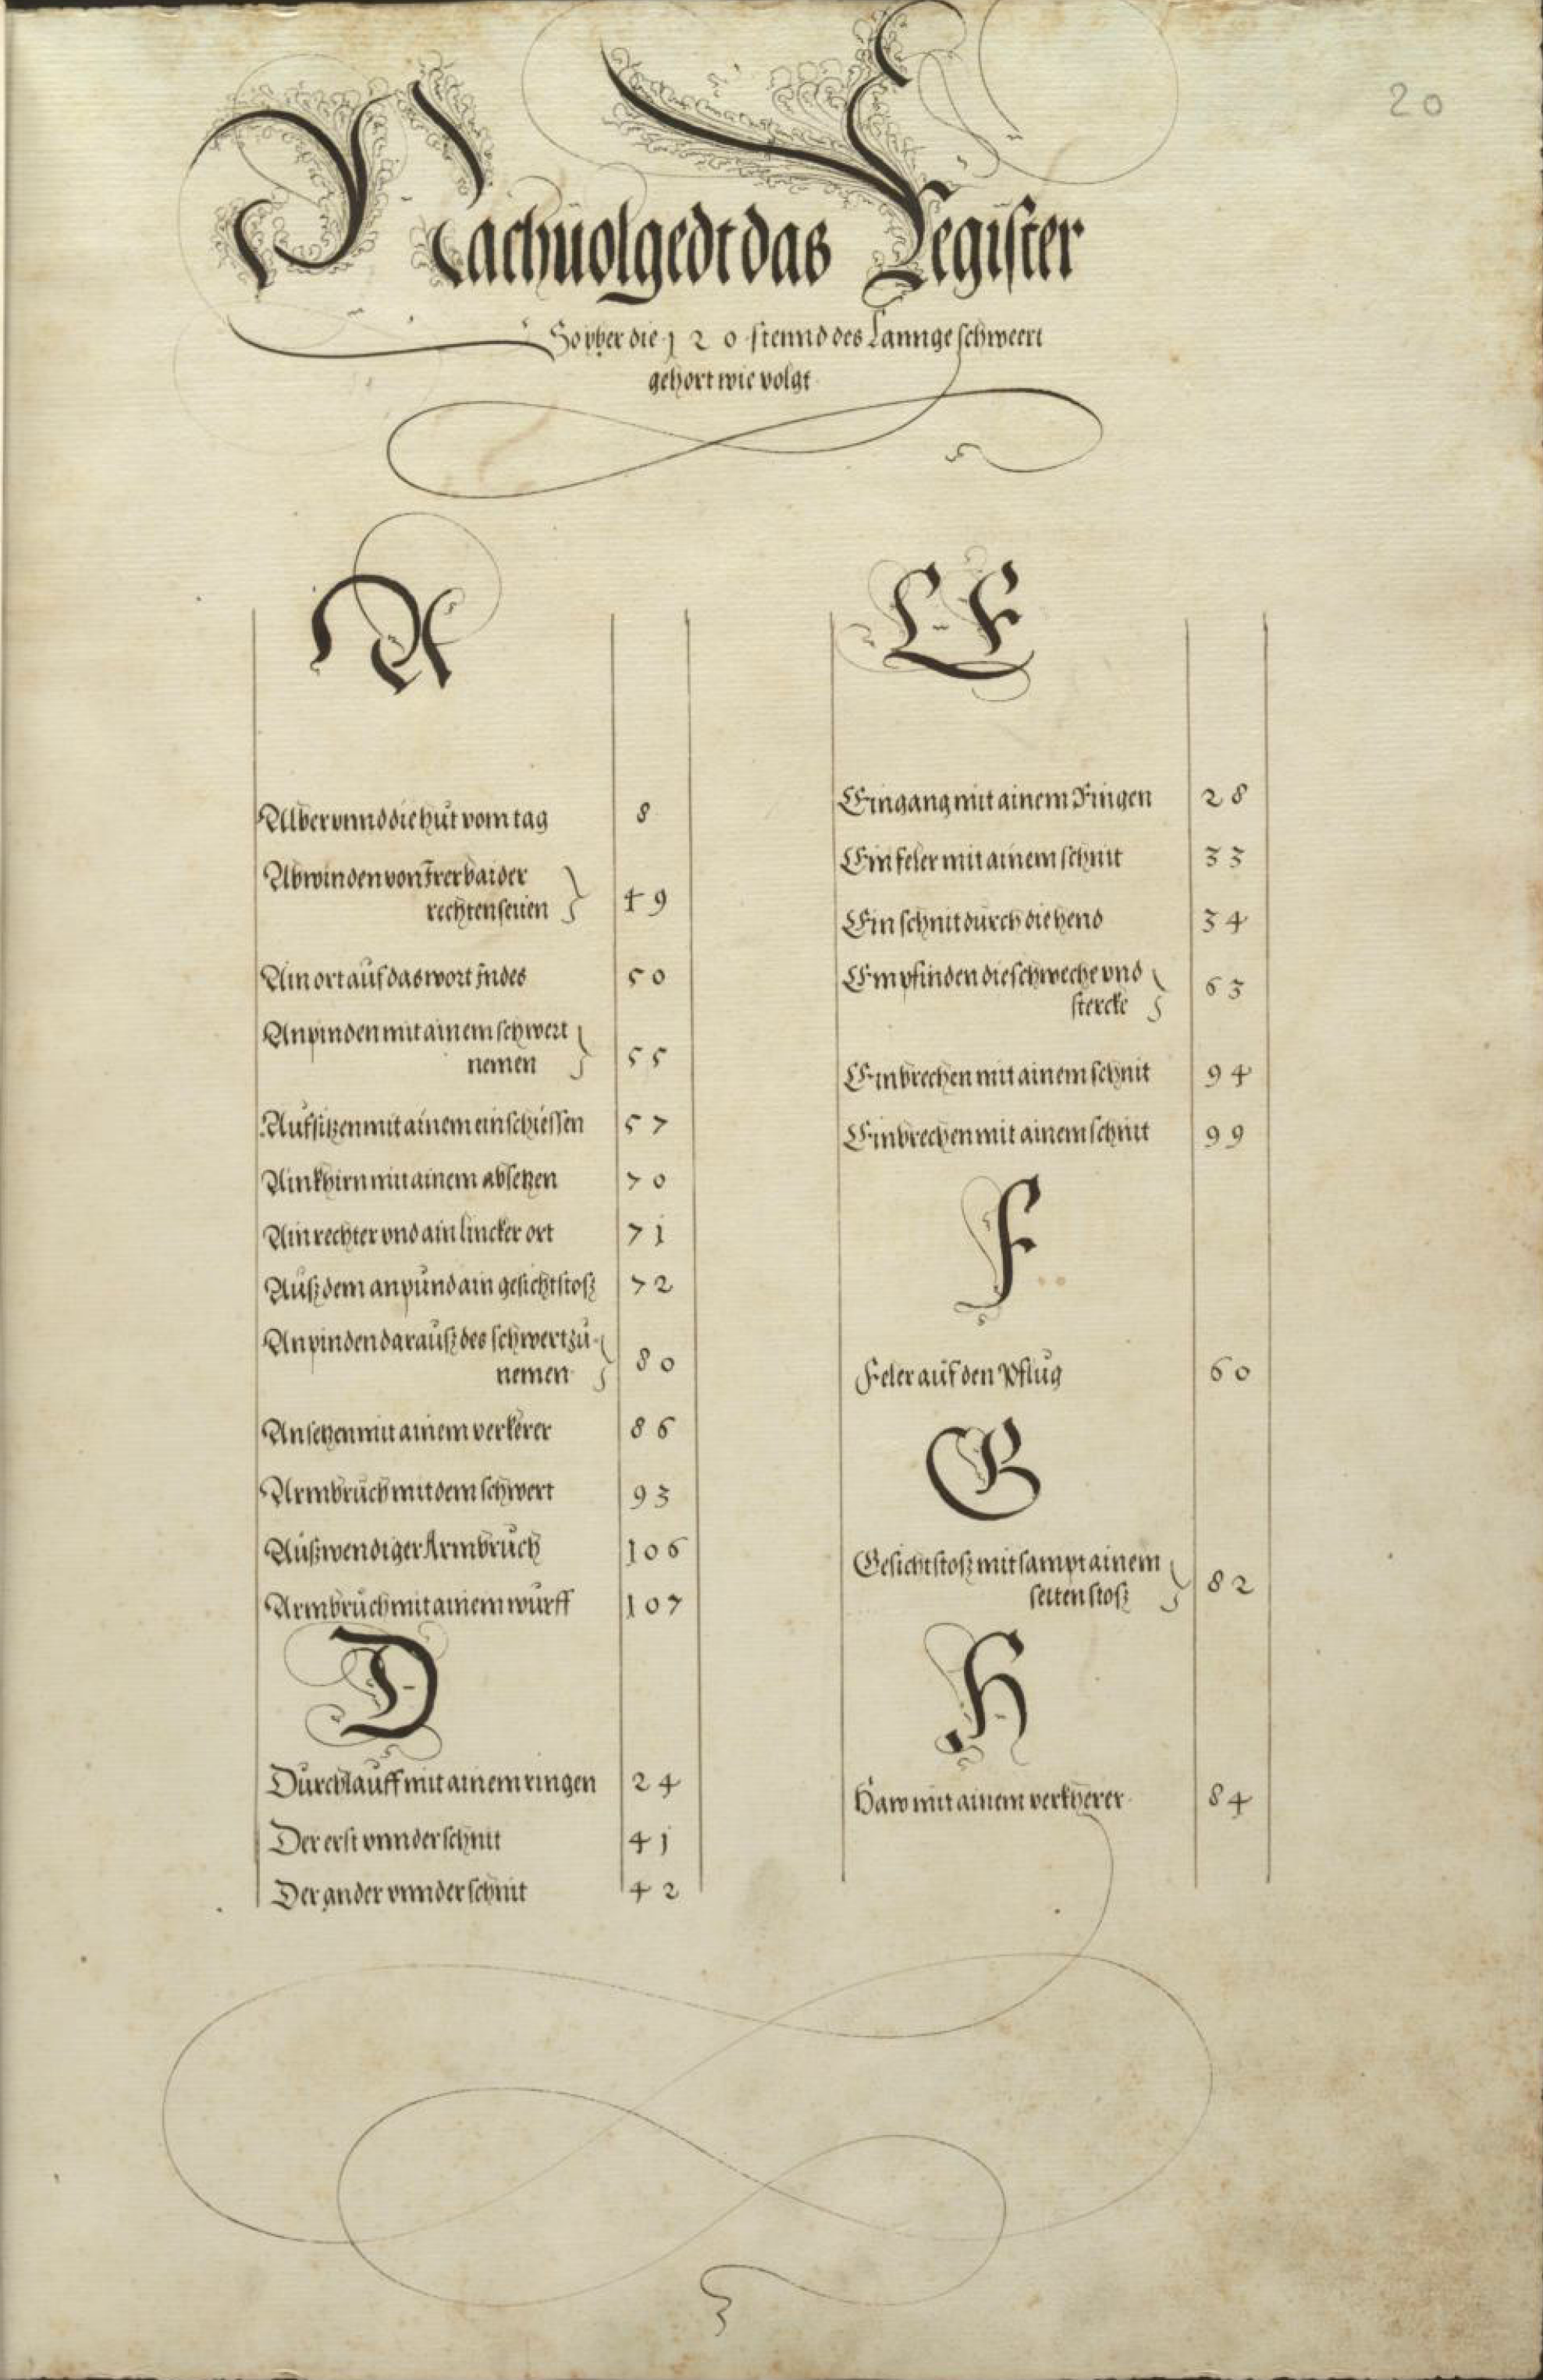 20
Nachuolgedt das Register
So vber die 120 stennd des Lannge schweert
gehort wie volgt
A
Alber vnnd die hůt vom tag 8
Abwinden von Irer baider
rechten seiten 49
Ain ort auf das wort Indes 50
Anpinden mit ainem schwert
nemen 55
Aufsitzen mit ainem einschiessen 57
Ain khirn mit ainem absetzen 70
Ain rechter vnd ain lincker ort 71
Ausz dem anpund ain gesicht stosz 72
Anpinden darausz des schwert zů
nemen 80
Ansetzen mit ainem verkerer 86
Armbruch mit dem schwert 93
Auszwendiger Armbruch 106
Armbruch mit ainem wurff 107
D
Durchlauff mit ainem ringen 24
Der erst vnnder schnit 41
Der ander vnnder schnit 42
E
Eingang mit ainem Ringen 28
Ein feler mit ainem schnit 33
Ein schnit durch die hend 34
Empfinden die schweche vnd
stercke 63
Einbrechen mit ainem schnit 94
Einbrechen mit ainem schnit 99
F
Feler auf den Pflug 60
G
Gesicht stosz mit sampt ainem
seiten stosz 82
H
Haw mit ainem verkherer 84